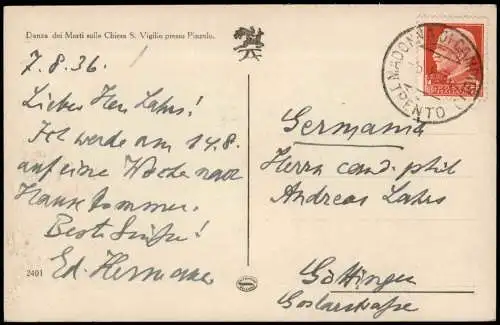 Danza dei Morti sulla Chiesa S. Vigilio presso Pinzolo.
7.8.36.
Lieber Herr Lahrs!
Ich werde am 14.8.
auf eine Woche nach
Hause kommen.
Beste Grüße!
Ed. Hermann
2401
MADONNA DI CAMPIGLIO
TRENTO
Germania
Herrn cand. phil
Andreas Lahrs
Göttingen
Goslarstraße